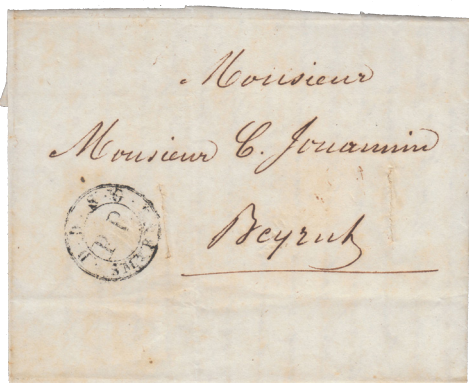 Monsieur
Monsieur C. Jouannin
Beyrut
P P